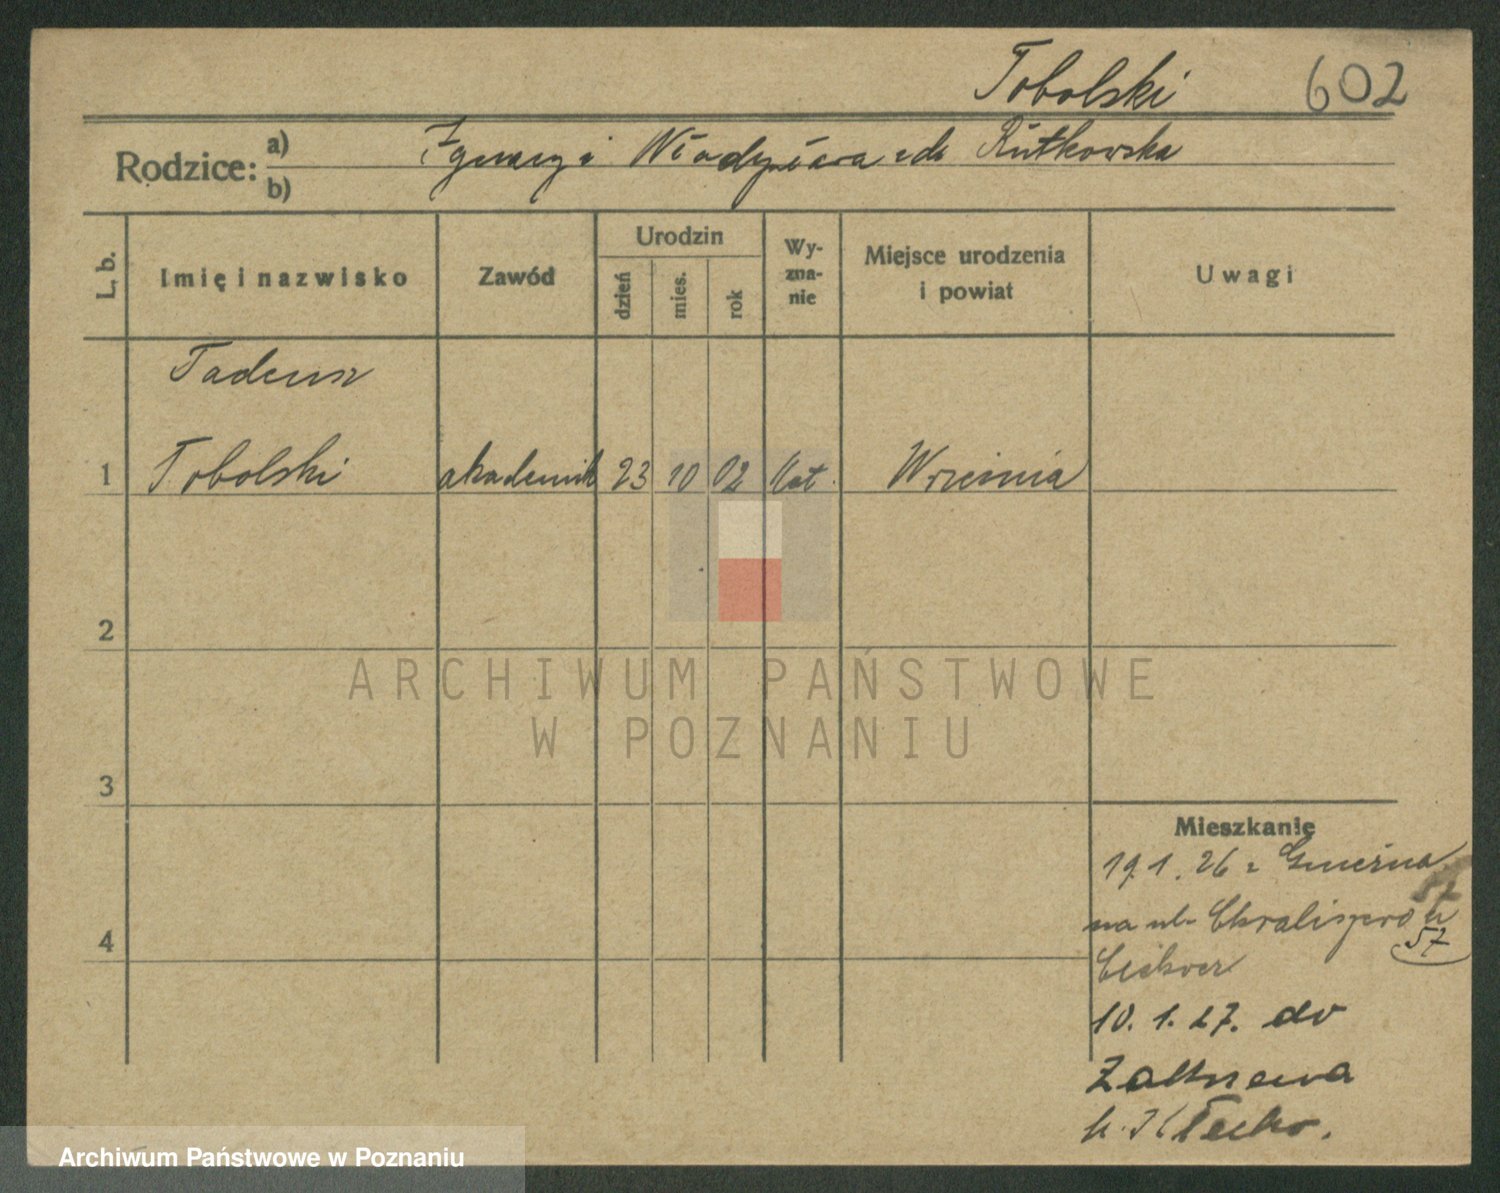 Tobolski 602
Rodzice: a) Ignacy i Władysława zd. Rutkowska
b)
L. b. Imię i nazwisko Zawód Urodzin dzień mies. rok Wy-zna-nie Miejsce urodzenia i powiat Uwagi
Tadeusz
1 Tobolski akademik 23 10 02 kat. Września
2
3
4
Mieszkanie
19.1.26 z Gniezna
na ul.
57
10. 1. 27. do
ARCHIWUM PAŃSTWOWE
W POZNANIU
Archiwum Państwowe w Poznaniu